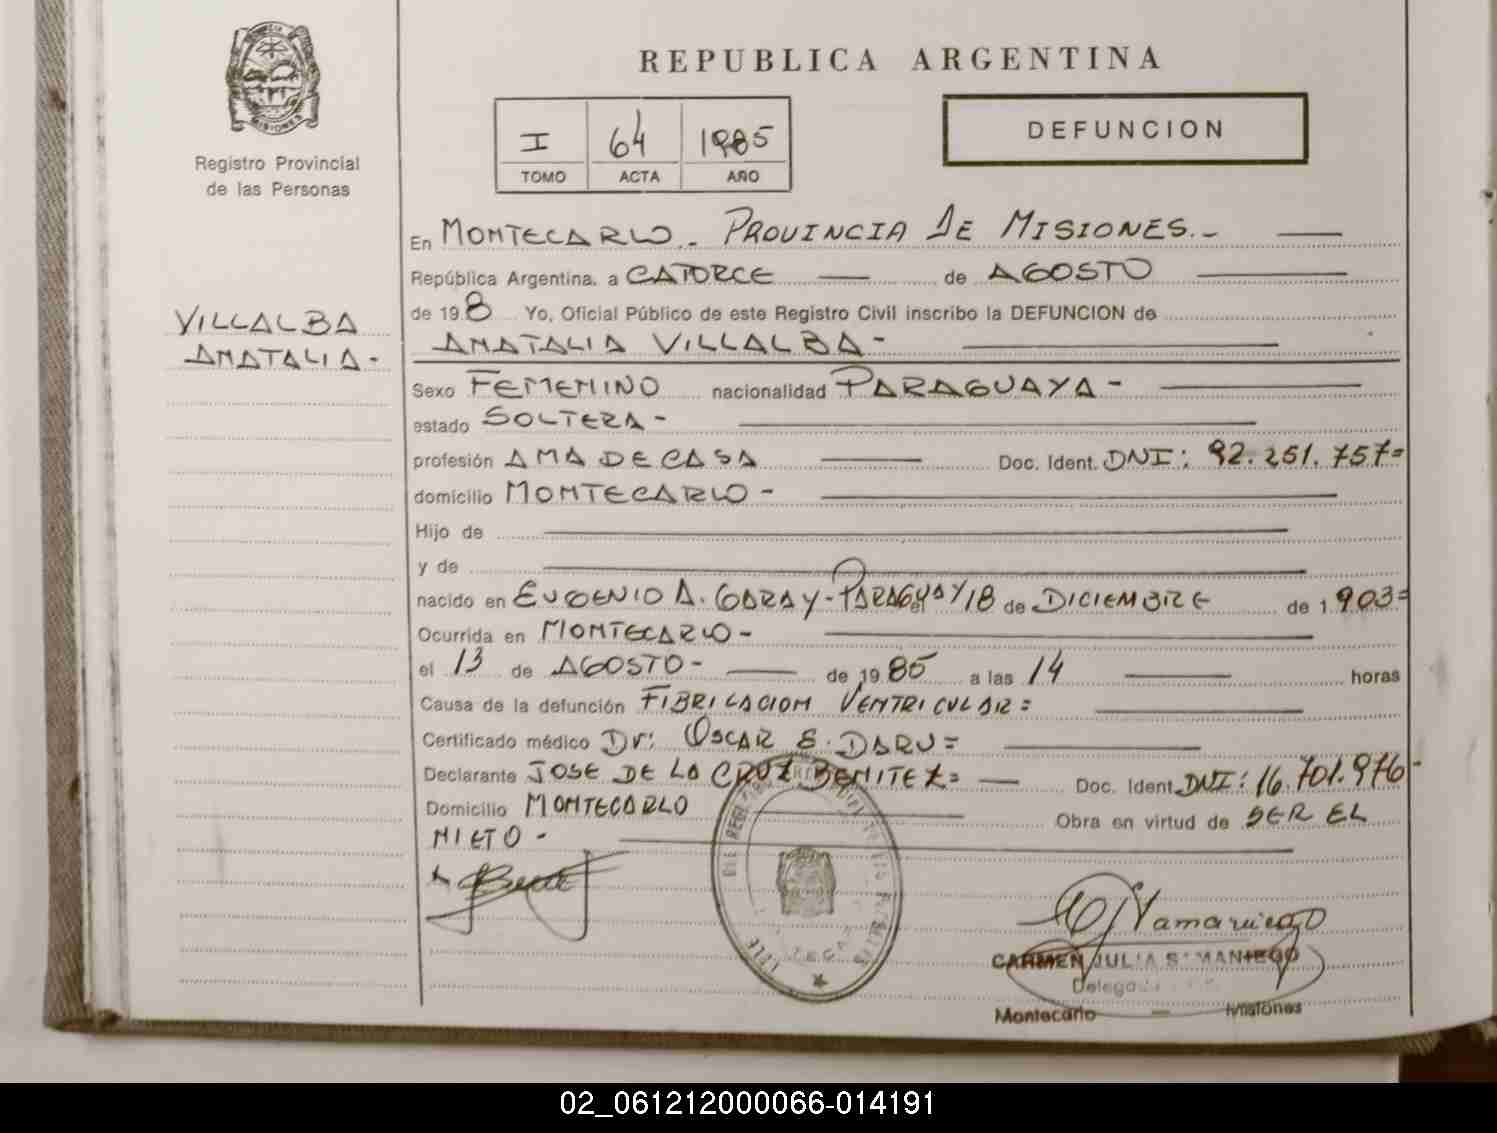 REPUBLICA ARGENTINA
MISIONES
Registro Provincial
de las Personas
I 64 1985
TOMO ACTA AÑO
DEFUNCION
VILLALBA
ANATALIA -
En MONTECARLO - PROVINCIA DE MISIONES. -
República Argentina, a CATORCE de AGOSTO
de 198 Yo, Oficial Público de este Registro Civil inscribo la DEFUNCION de
ANATALIA VILLALBA -
Sexo FEMENINO nacionalidad PARAGUAYA -
estado SOLTERA -
profesión AMA DE CASA Doc. Ident. DNI: 92.251.757=
domicilio MONTECARLO -
Hijo de
y de
nacido en EUGENIO A. GARAY - PARAGUAY el 18 de DICIEMBRE de 1.903=
Ocurrida en MONTECARLO -
el 13 de AGOSTO - de 19 85 a las 14 horas
Causa de la defunción FIBRILACION VENTRICULAR =
Certificado médico Dr: OSCAR E. DARU =
Declarante JOSE DE LA CRUZ BENITEZ = Doc. Ident. DNI: 16.701.976 -
Domicilio MONTECARLO Obra en virtud de SER EL
NIETO -
CARMEN JULIA SAMANIEGO
Delegada
Montecarlo — Misiones
02_061212000066-014191